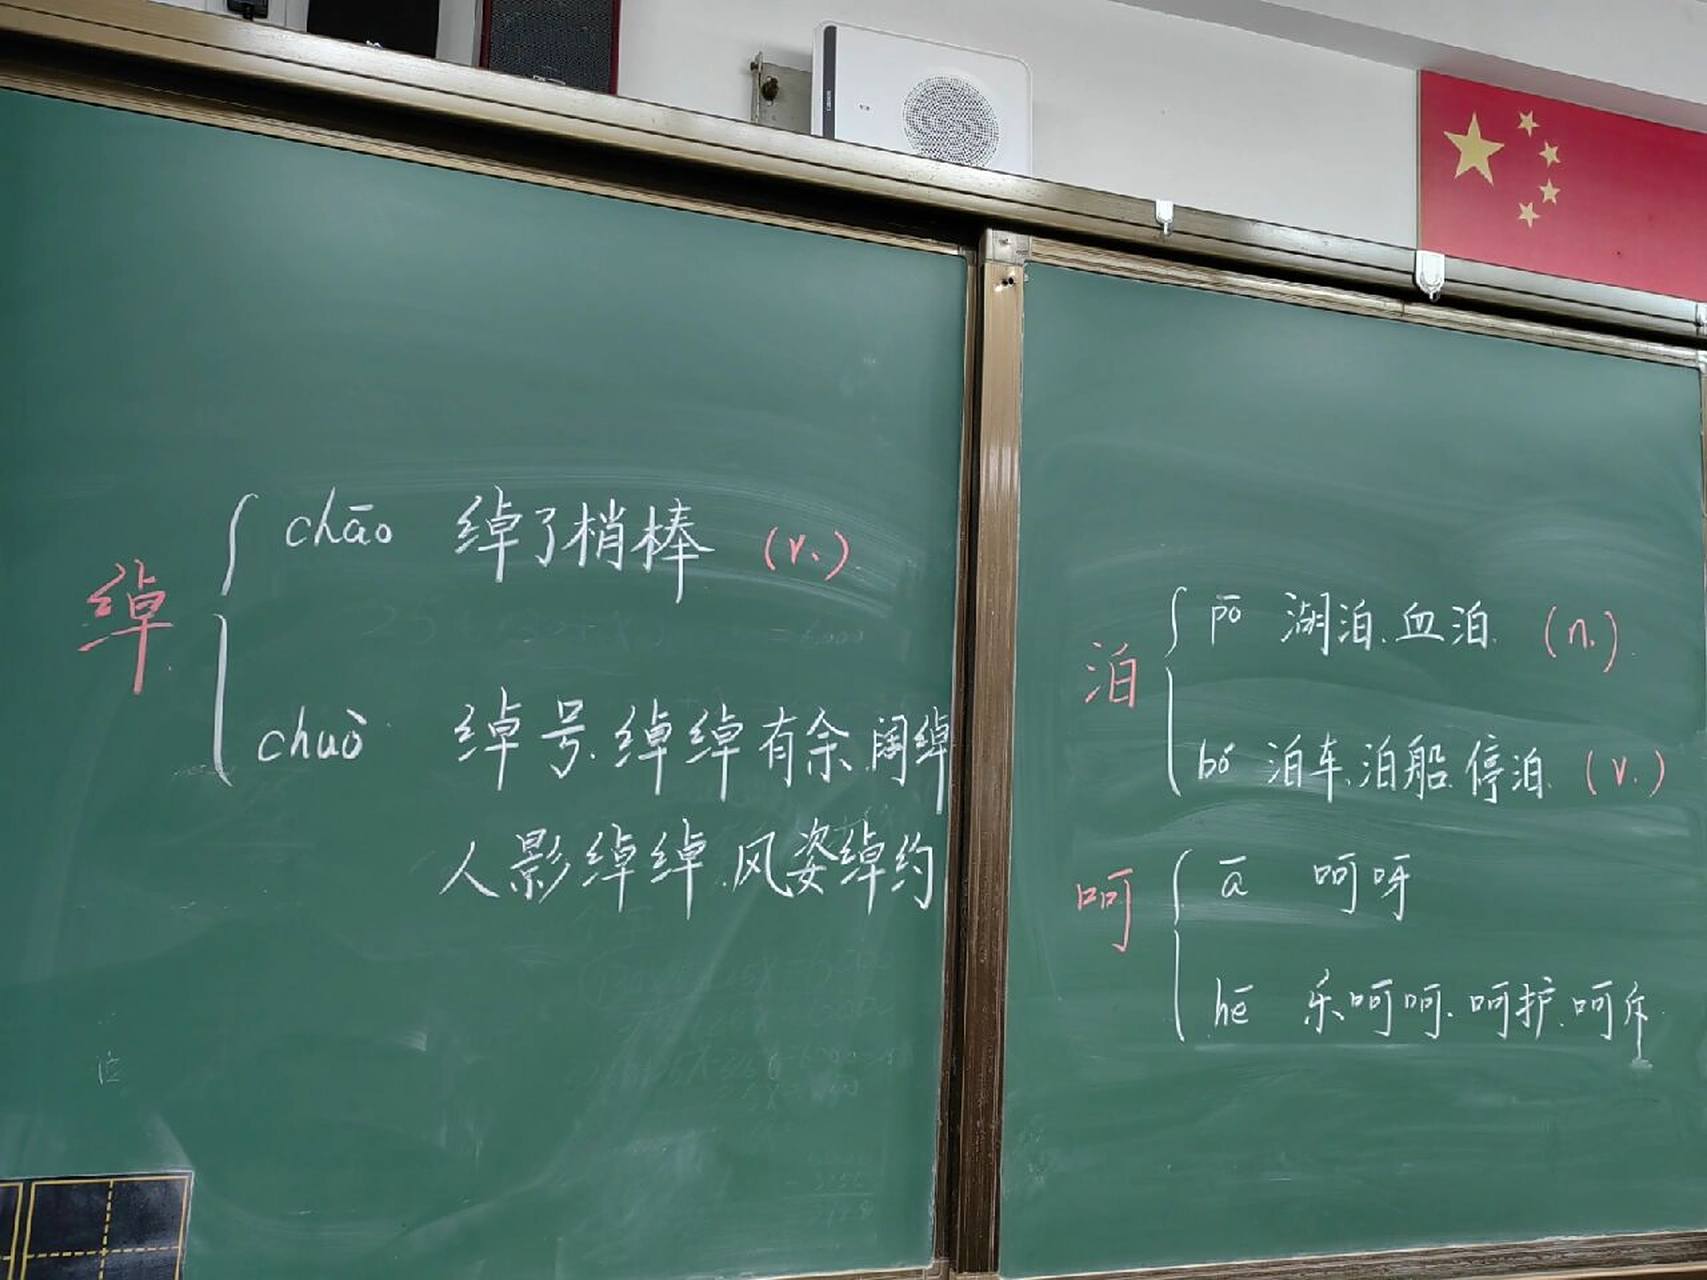 绰
chāo 绰了梢棒 (v.)
chuò 绰号、绰绰有余、阔绰
人影绰绰、风姿绰约
泊
pō 湖泊、血泊 (n.)
bó 泊车、泊船、停泊 (v.)
呵
ā 呵呀
hē 乐呵呵、呵护、呵斥